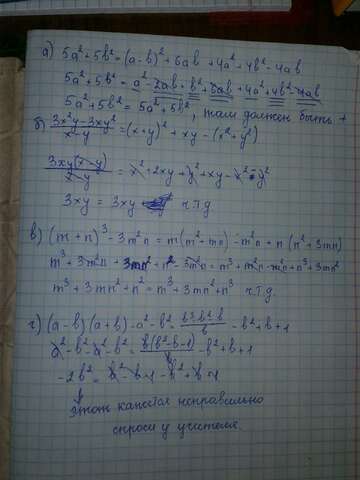 а) 5a²+5b²=(a-b)²+6ab+4a²+4b²-4ab
5a²+5b²=a²-2ab+b²+6ab+4a²+4b²-4ab
5a²+5b²=5a²+5b², там должен быть +
б) (3x²y-3xy²)/(x-y)=(x+y)²+xy-(x²+y²)
3xy(x-y)/(x-y)=x²+2xy+y²+xy-x²-y²
3xy=3xy ч.т.д.
в) (m+n)³-3m²n=m(m²+mn)-m²n+n(n²+3mn)
m³+3m²n+3mn²+n³-3m²n=m³+m²n-m²n+n³+3mn²
m³+3mn²+n²=m³+3mn²+n³ ч.т.д.
г) (a-b)(a+b)-a²-b²=(b³-b²-b)/b-b²+b+1
a²-b²-a²-b²=b(b²-b-1)/b-b²+b+1
-2b²=b²-b-1-b²+b+1
этот кажется неправильно
спроси у учителя.